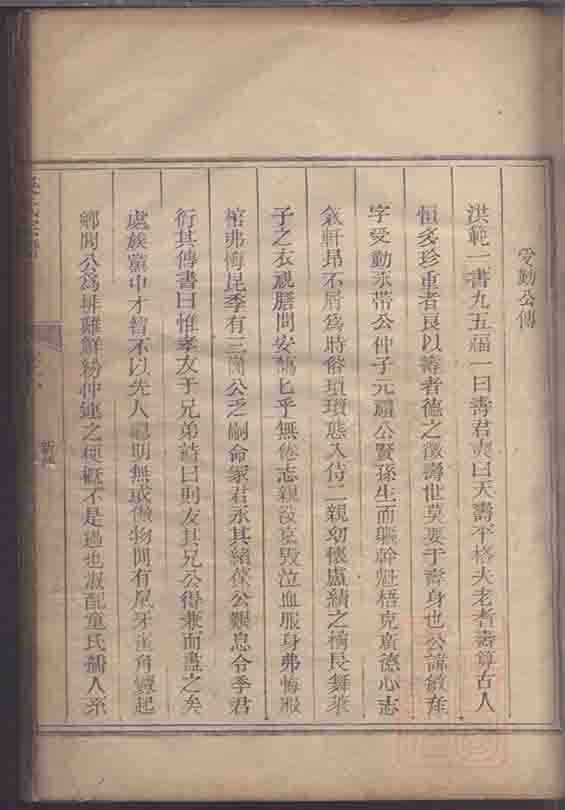 受勤公傳
洪範一書九五福一曰壽君奭曰天壽平格夫老者壽算古人
恒多珍重者良以壽者德之徵壽世莫要于壽身也公諱
字受勤 帶公仲子元 公賢孫生而軀幹魁梧克廣德心志
氣軒昂不屑為時俗瑣瑣態入侍二親幼懷盧績之橘長舞萊
子之衣視膳問安 乎無倦志親没哀毁泣血服身弗悔
棺弗悔昆季有三 公乏嗣命家君承其緒 公 息令季君
衍其傳書曰惟孝友于兄弟詩曰則友其兄公得兼而盡之矣
處族黨中才智不以先人聰明無或傲物間有鼠牙雀角釁起
鄉閭公為排難解紛仲連之梗概不是過也淑配童氏 人